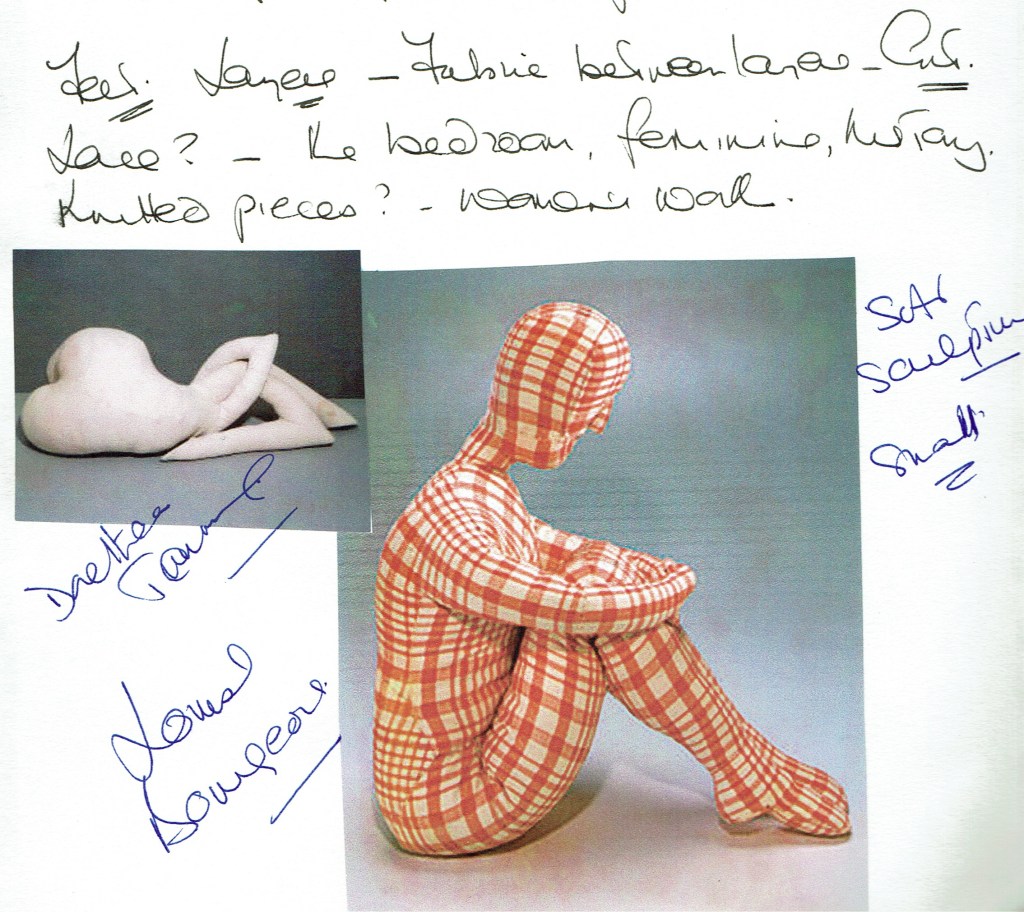 Felt. Layers – Fabric between layers – Cut.
Lace? – the bedroom, feminine, history.
Knitted pieces? – women's work.
Soft
Sculpture
Small
Dorothea
Tanning
Louise
Bourgeois.